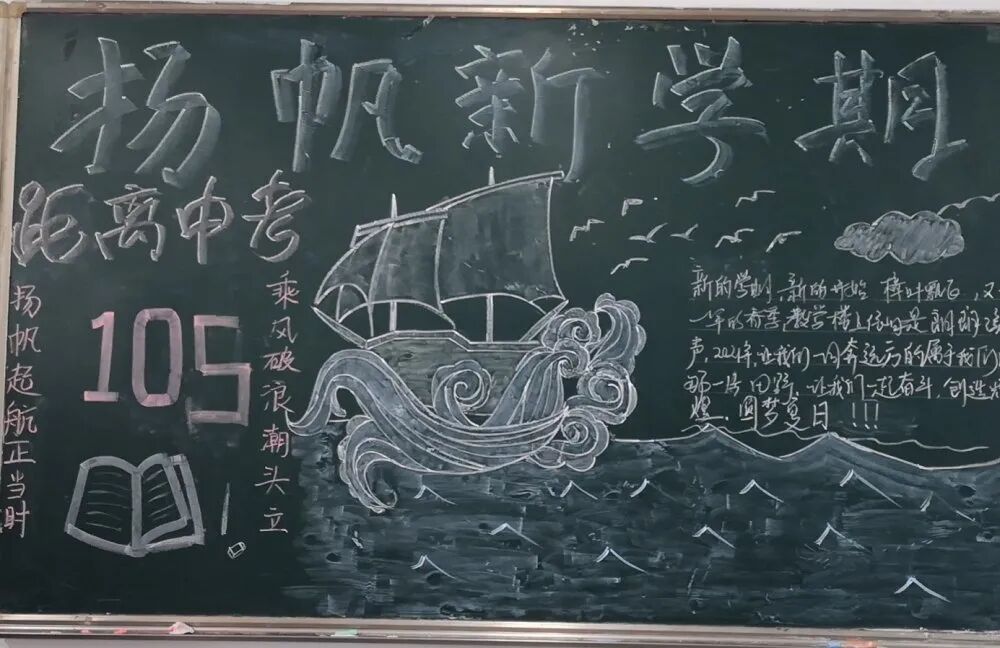 扬帆新学期
距离中考
105
扬帆起航正当时
乘风破浪潮头立
新的学期,新的开始 又
一年的春季 教学楼上 是
声,2024年,让我们一同奔远方的属于我们
那一片 让我们一起奋斗,创造
圆梦夏日!!!